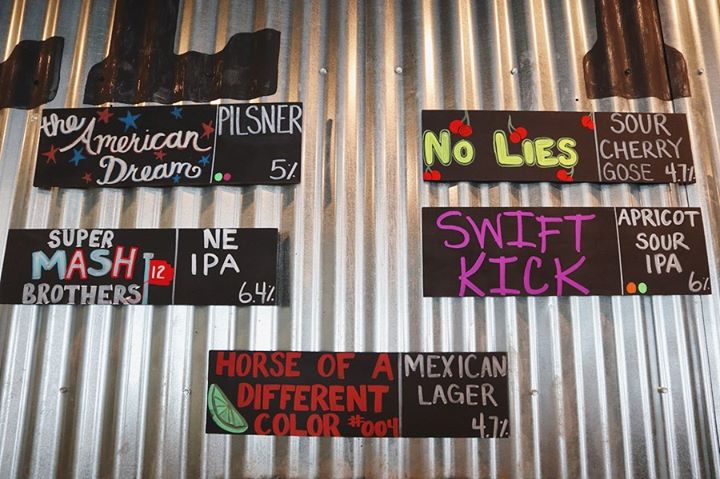 the American
Dream
PILSNER
5%
No Lies
SOUR
CHERRY
GOSE 4.7%
SUPER
MASH
BROTHERS
12
NE
IPA
6.4%
SWIFT
KICK
APRICOT
SOUR
IPA
6%
HORSE OF A
DIFFERENT
COLOR #004
MEXICAN
LAGER
4.7%